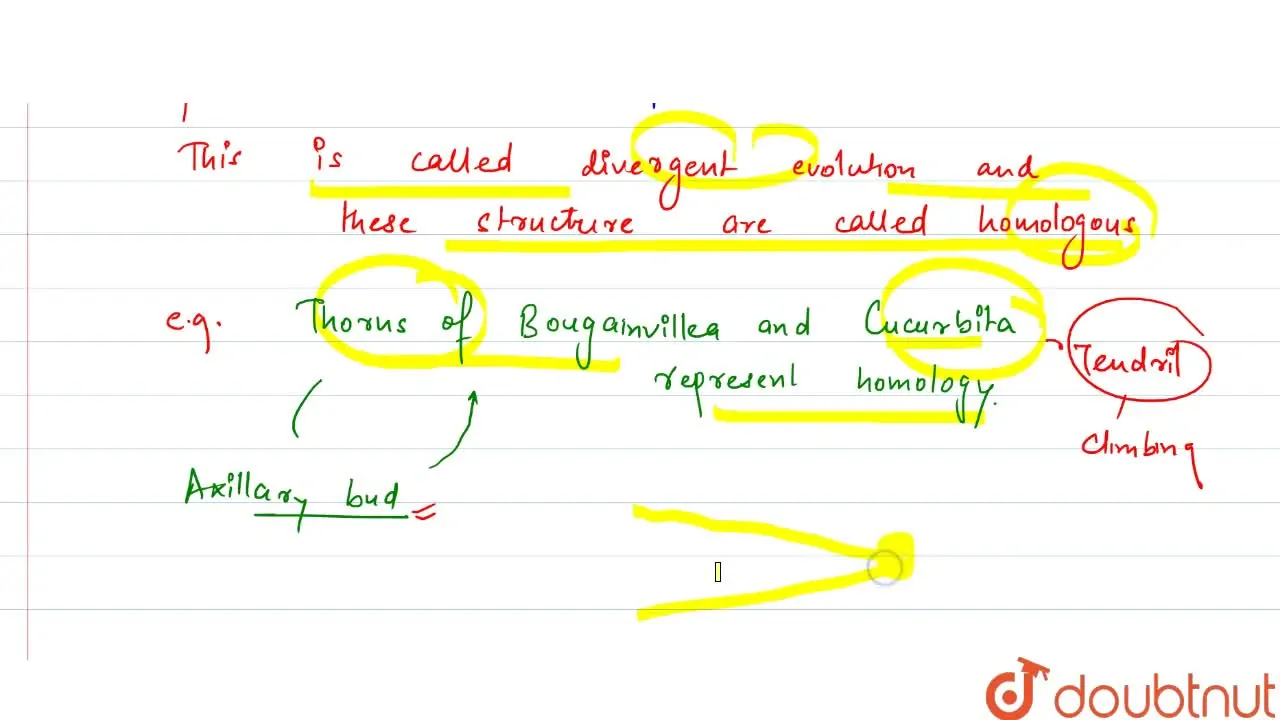 This is called divergent evolution and
these structure are called homologous
e.g. Thorns of Bougainvillea and Cucurbita
represent homology.
Tendril
Climbing
Axillary bud
doubtnut